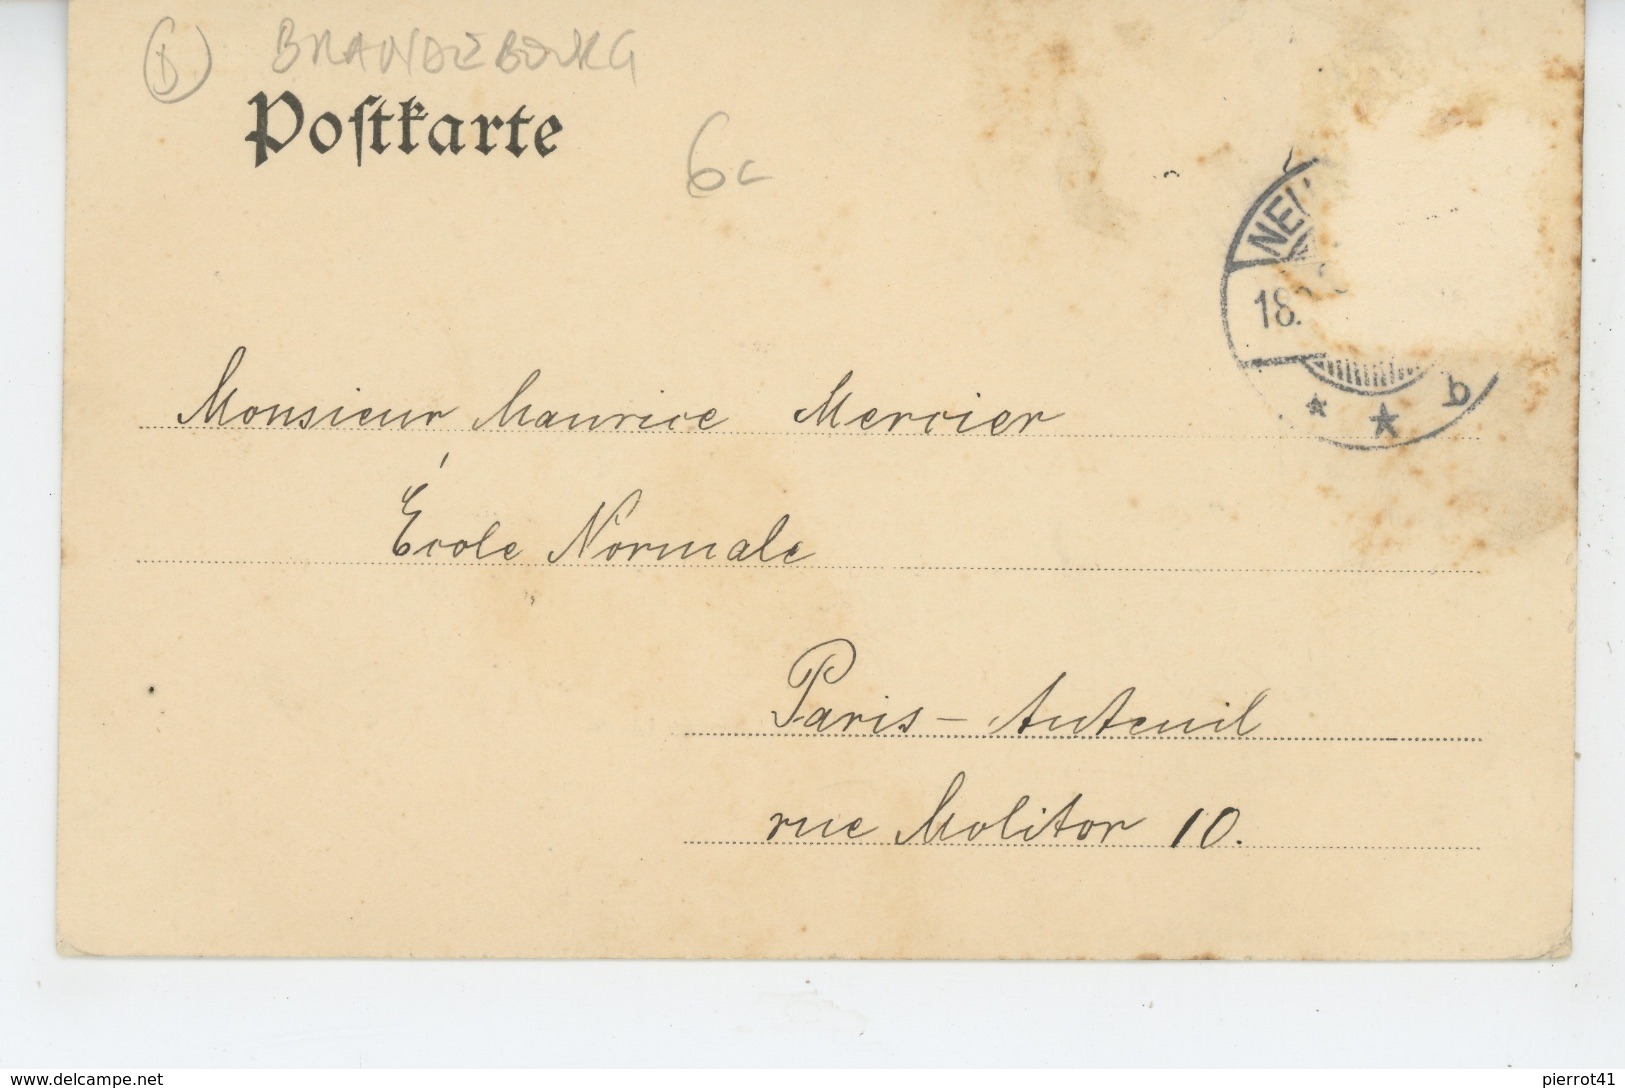 D BRANDEBOURG
Poſtkarte
6c
NEU
18.
b
Monsieur Maurice Mercier
École Normale
Paris - Auteuil
rue Molitor 10.
www.delcampe.net
pierrot41